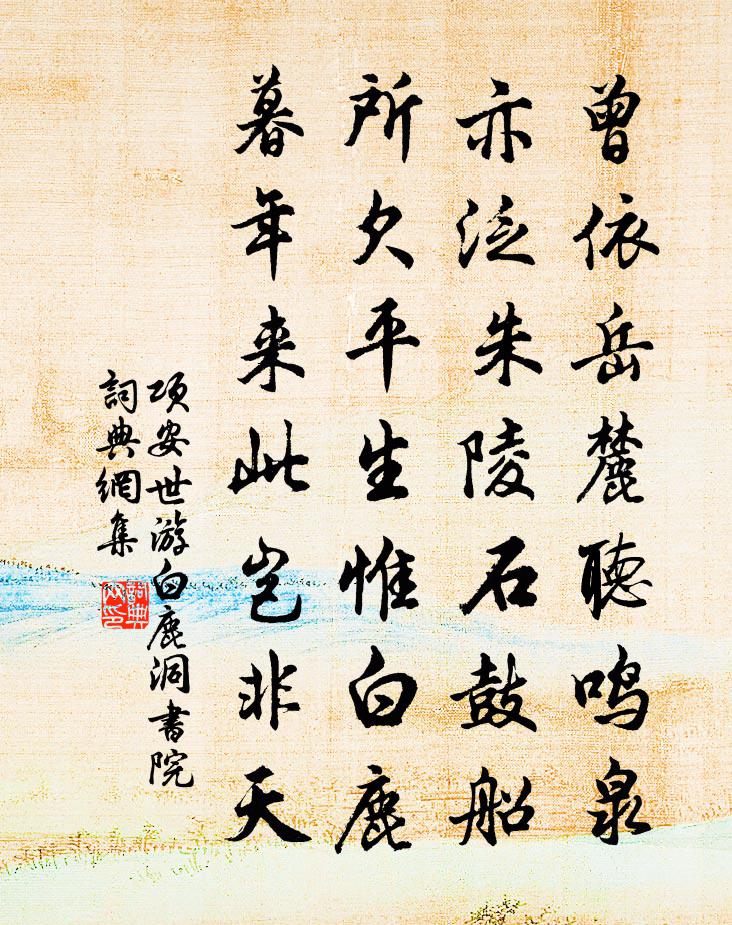 曾依岳麓聽鳴泉
亦泛朱陵石鼓船
所欠平生惟白鹿
暮年来此岂非天
項安世游白鹿洞書院
詞典網集